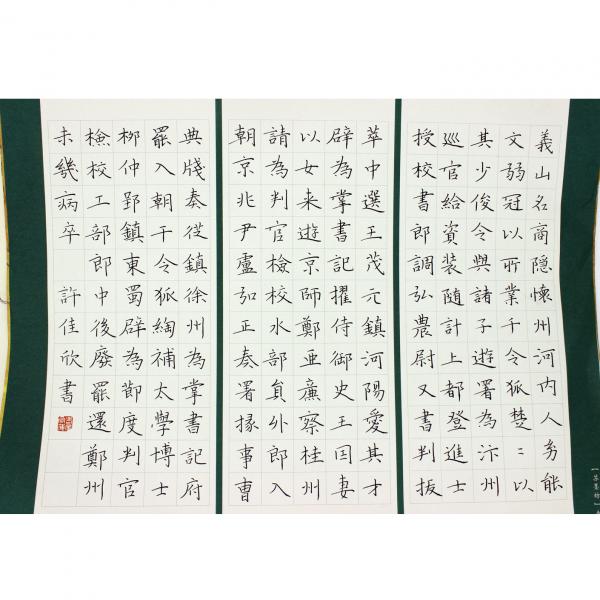 義山名商隱懷州河内人㓜能
文弱冠以所業干令狐楚〻以
其少俊令與諸子遊署為汴州
巡官給資装随計上都登進士
授校書郎調弘農尉又書判拔
萃中選王茂元鎮河陽愛其才
辟為掌書記擢侍御史王因妻
以女来遊京師鄭亜廉察桂州
請為判官檢校水部員外郎入
朝京兆尹盧弘正奏署掾事曹
典牋奏從鎮徐州為掌書記府
罷入朝干令狐綯補太學博士
柳仲郢鎮東蜀辟為節度判官
檢校工部郎中後廢罷還鄭州
未幾病卒 許佳欣書